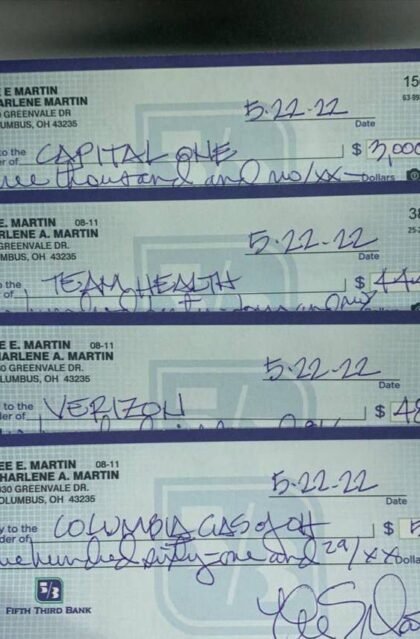 E E MARTIN 15
ARLENE MARTIN 63-99
GREENVALE DR 5-22-22
UMBUS, OH 43235 Date
to the
er of CAPITAL ONE $ 3,000
ee thousand and no/xx Dollars
E. MARTIN 08-11 38
RLENE A. MARTIN 25-2
GREENVALE DR. 5-22-22
MBUS, OH 43235 Date
the
of TEAM HEALTH $ 444
E E. MARTIN 08-11
ARLENE A. MARTIN
0 GREENVALE DR. 5-22-22
LUMBUS, OH 43235 Date
to the
der of VERIZON $ 48
EE E. MARTIN 08-11
HARLENE A. MARTIN
030 GREENVALE DR. 5-22-22
OLUMBUS, OH 43235 Date
y to the
der of COLUMBIA GAS of OH $ 5
e hundred sixty-one and 29/xx Dolla
5/3
FIFTH THIRD BANK